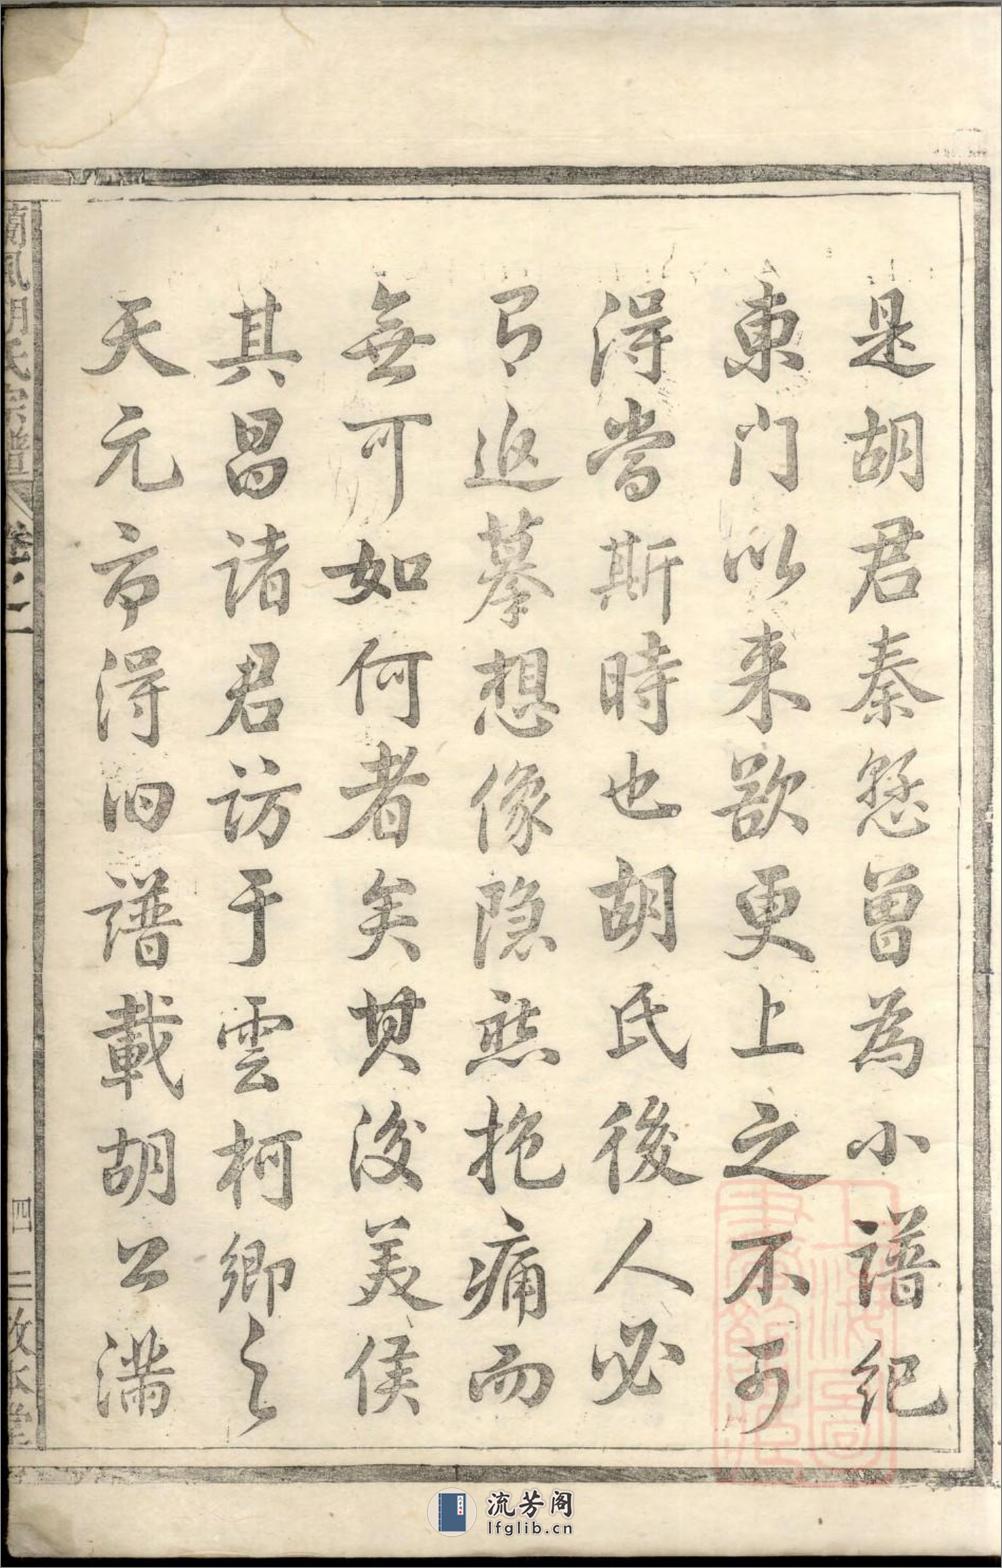 是胡君秦愁曾為小譜紀
東門以来欲更上之不可
得當斯時也胡氏後人必
有返摹想像隐然抱痛而
無可如何者矣其後美侯
其昌諸君訪于雲柯鄉之
天元市得旧譜載胡公滿
蘭風胡氏宗譜 卷二
四 三
上海圖書館藏
流芳阁
lfglib.cn